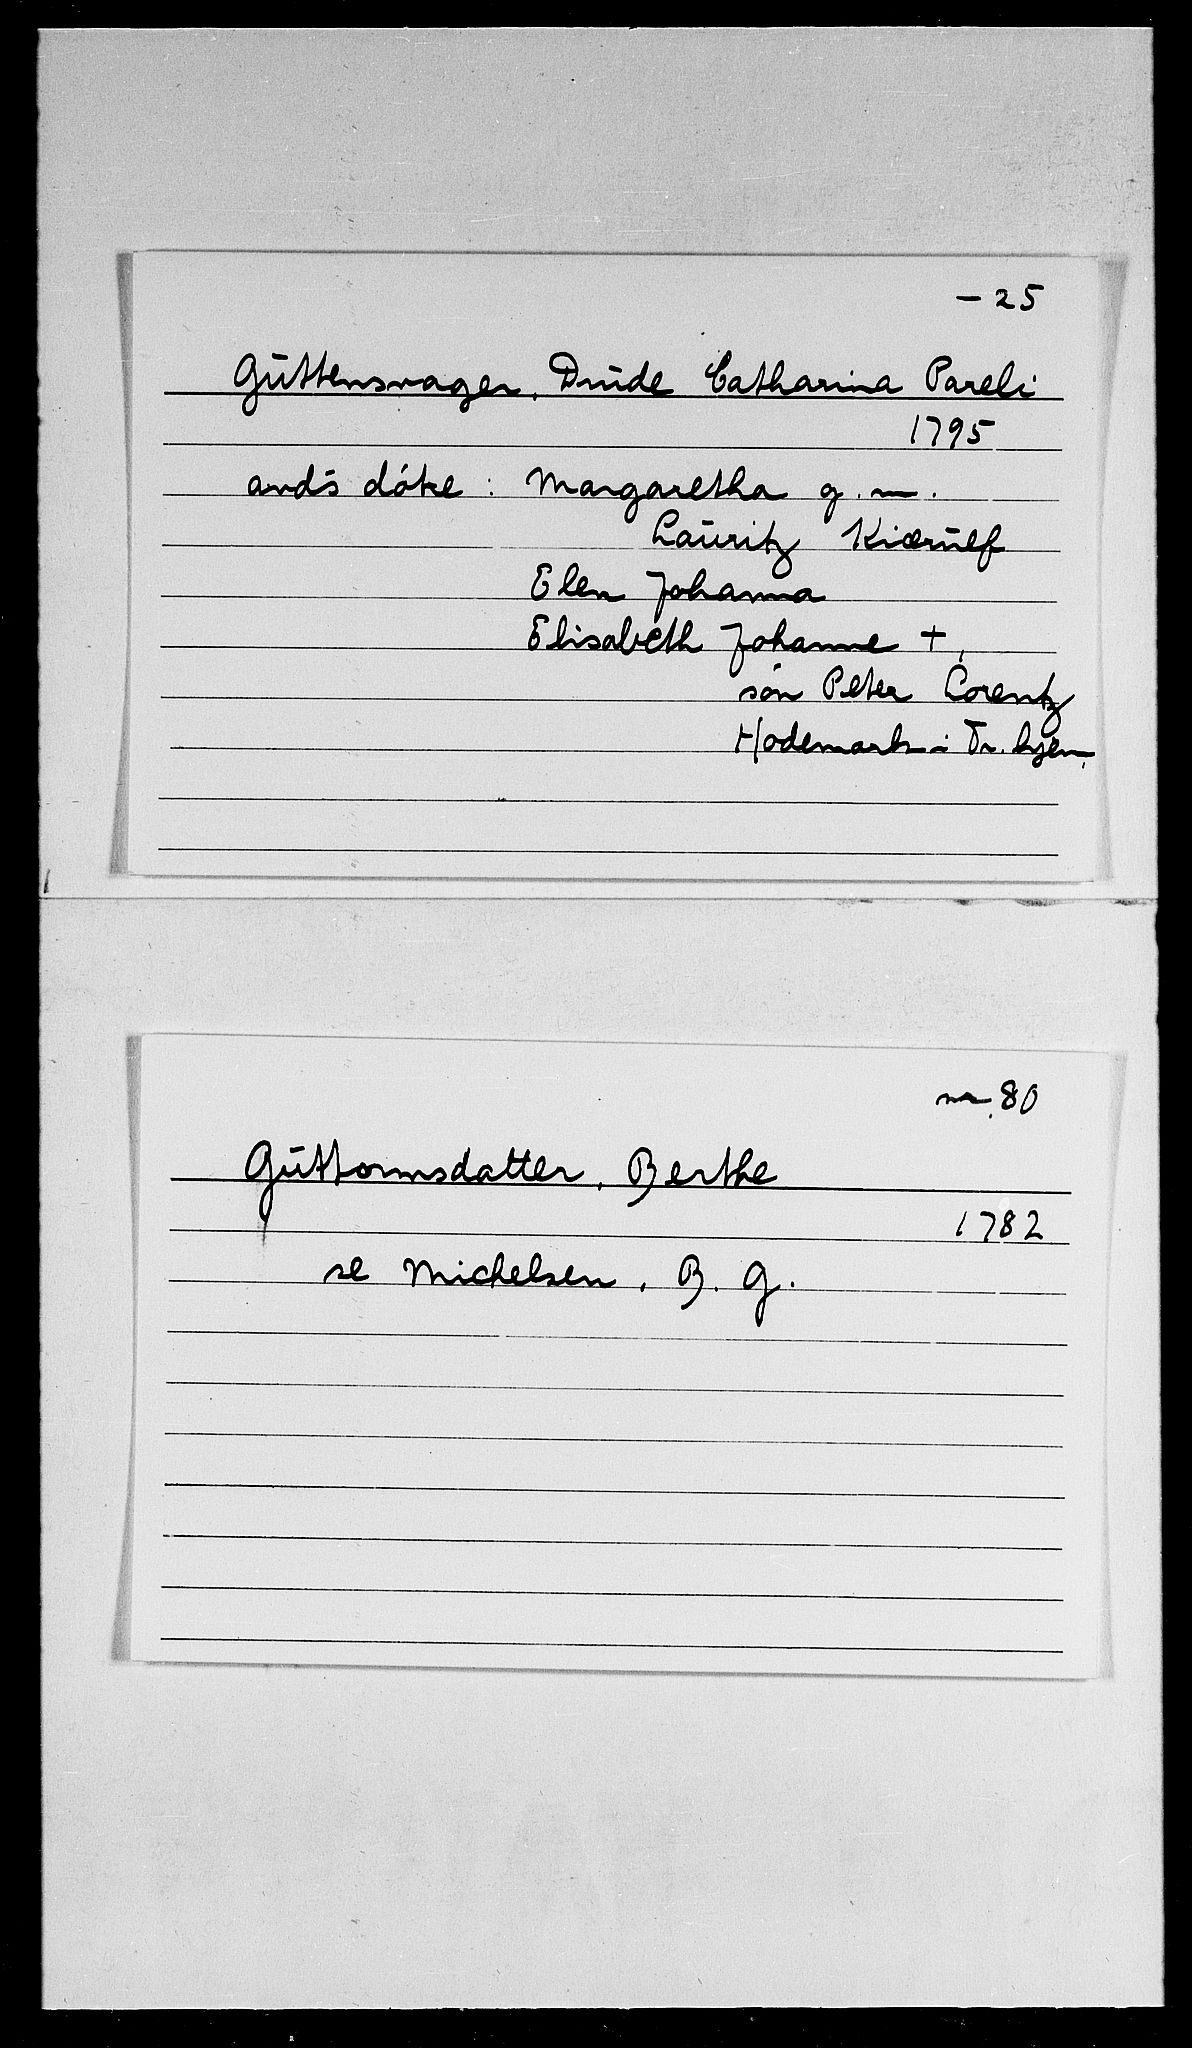 - 25
Guttensvager, Drude Catharina Pareli
1795
avd's døtre : Margaretha g. m.
Lauritz Kierulf
Elen Johanna
Elisabeth Johanne +,
søn Peter Lorentz
Hodemark i Tr. hjem.
nr. 80
Guttormsdatter, Berthe
1782
se Michelsen, B. G.